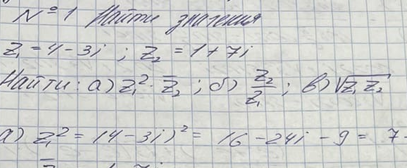 №1 Найти значения
z₁ = 4 - 3i ; z₂ = 1 + 7i
Найти: а) z₁² · z̅₂ ; б) z₂/z₁ ; в) √z₁z₂
а) z₁² = (4 - 3i)² = 16 - 24i - 9 = 7 -